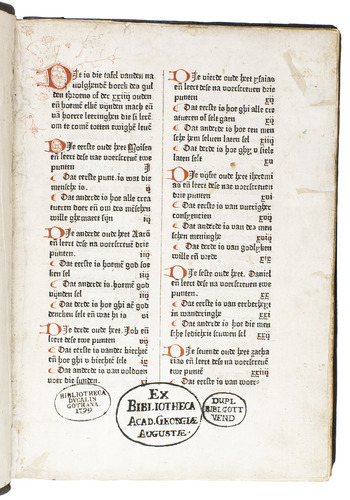 DJe is die tafel vanden na
uolghende boeck des gul
den throens of der xxiiij ouden
eñ hoemē elkē vinden mach eñ
vā hoere leeringhen die si leerē
om te comē totten ewighē leuē
DJe eerste oude heer Moises
eñ leert dese nae vorscreuē drie
punten
Dat eerste punt. is wat die
mensche is. ij
Dat anderde is hoe alle crea
tueren doer eñ om dē mēschen
wille ghemaect sijn iij
DJe anderde oude heer Aarō
eñ leert dese na vorscreuē drie
punten iiij
Dat eerste is hoemē god soe
ken sel iiij
Dat anderde is hoemē god
vijnden sel iiij
Dat derde is hoe ghi aē god
dencken selt eñ wat hi is
DJe derde oude heer. Job eñ
leert dese twe punten vij
Dat eerste is vander biecht
eñ hoe ghi v biechtē selt
Dat anderde is van voldoen
voer die sunden. xi
DJe vierde oude heer ysaias
eñ leert dese na vorscreuē drie
punten xij
Dat eerste is hoe ghi alle cre
atueren of selt gaen xij
Dat anderde is hoe een men
sche hem seluen laten sel xiij
Dat derde is hoe ghy v siele
laten selt
DJe vijfte oude heer iheremi
as eñ leert dese nae vorscreuen
drie punten xvi
Dat eerste is van vierighe
consciencien
Dat anderde is van des mē
schen meninghe
Dat derde is van godlyken
wille eñ vrede xix
DJe seste oude heer. Daniel
eñ leert dese na vorscreuē twe
punten. xx
Dat eerste is van eerbeerhye
in wanderinghe
Dat anderde is hoe die men
sche ledicheit scuwen sel
DJe seuende oude heer zacha
rias eñ leert dese na vorscreuē
twe puntē
Dat eerste is van wore
BIBLIOTHECA
DVCALIS
GOTHANA.
1799
EX
BIBLIOTHECA
ACAD. GEORGIÆ
AUGUSTÆ.
DUPL
BIBL GOTT
VEND